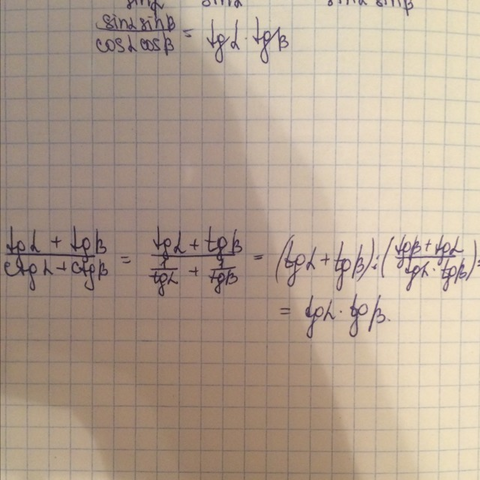 sinα sinα sinα sinβ
sinα sinβ / cosα cosβ = tgα · tgβ
tgα + tgβ / ctgα + ctgβ = tgα + tgβ / 1/tgα + 1/tgβ = (tgα + tgβ) : (tgβ + tgα / tgα · tgβ) =
= tgα · tgβ.